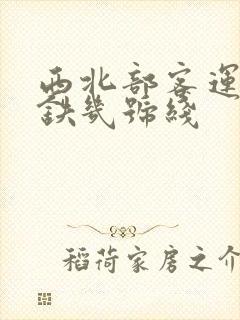 西北部客運
鉄幾號綫
稻荷家房之介